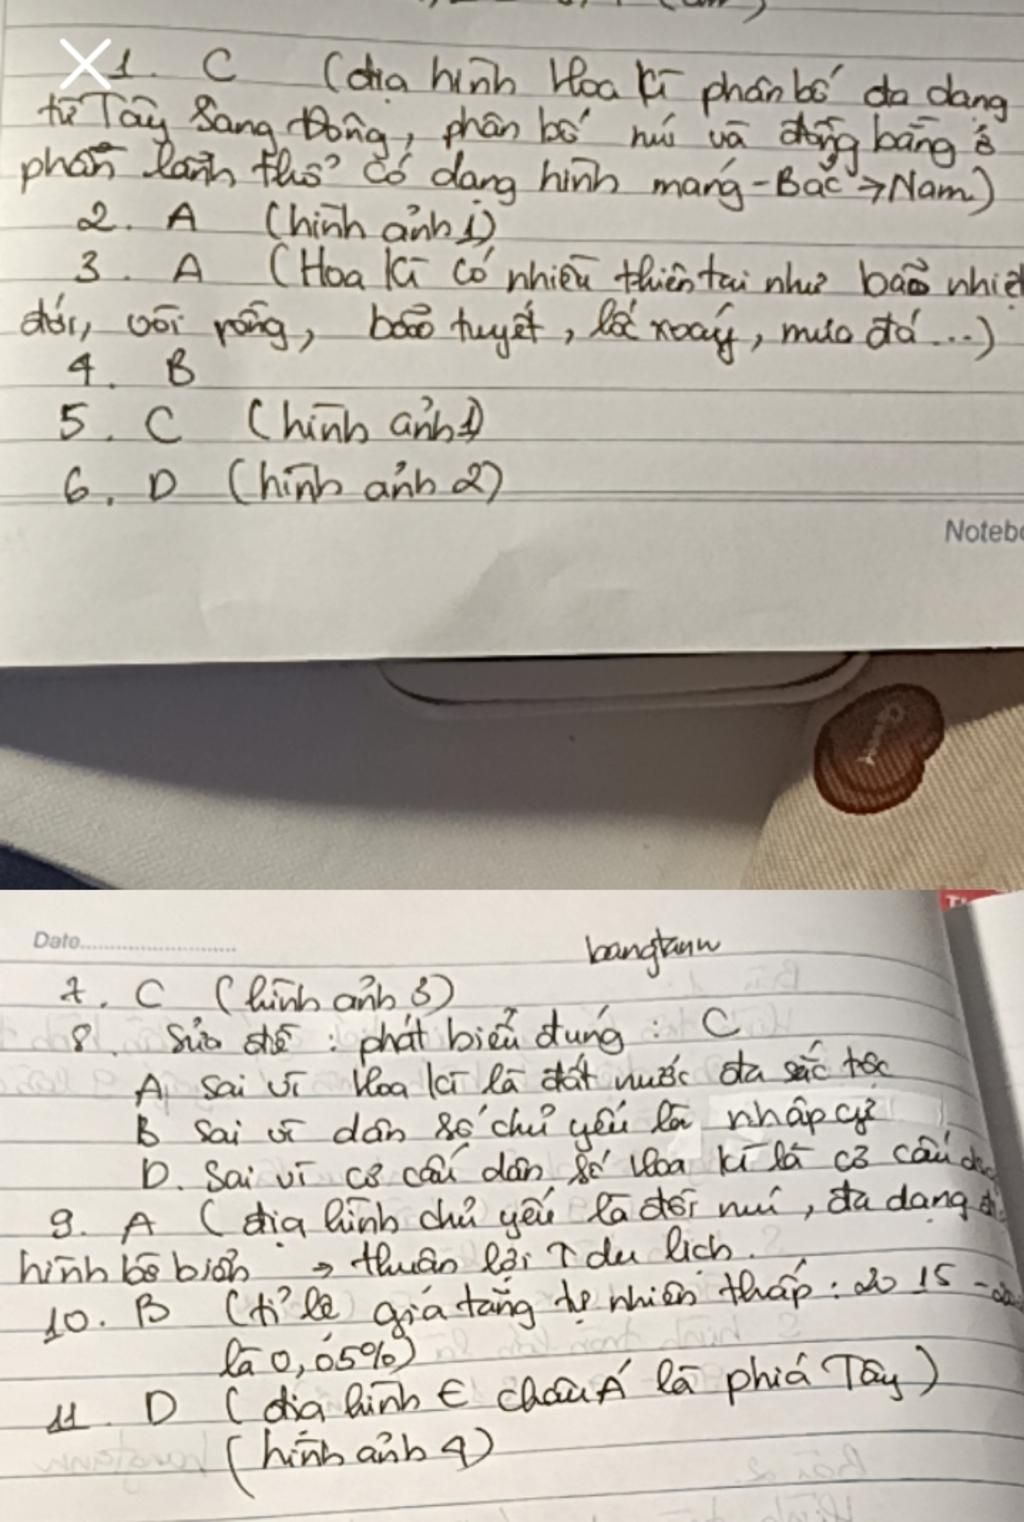 1. C (địa hình Hoa Kì phân bố đa dạng
từ Tây sang Đông, phân bố núi và đồng bằng ở
phần lãnh thổ có dạng hình máng - Bắc → Nam)
2. A (hình ảnh 1)
3. A (Hoa Kì có nhiều thiên tai như bão nhiệt
đới, vòi rồng, bão tuyết, lốc xoáy, mưa đá...)
4. B
5. C (hình ảnh 1)
6. D (hình ảnh 2)
Notebo
Date
bangtanw
7. C (hình ảnh 3)
8. Sửa đề : phát biểu đúng : C
A sai vì Hoa Kì là đất nước đa sắc tộc
B sai vì dân số chủ yếu là nhập cư
D. Sai vì cơ cấu dân số Hoa Kì là cơ cấu
9. A (địa hình chủ yếu là đồi núi, đa dạng
hình bờ biển → thuận lợi ↑ du lịch.
10. B (tỉ lệ gia tăng tự nhiên thấp : 2015 -
là 0,05%)
11. D (địa hình ∈ châu Á là phía Tây)
(hình ảnh 4)